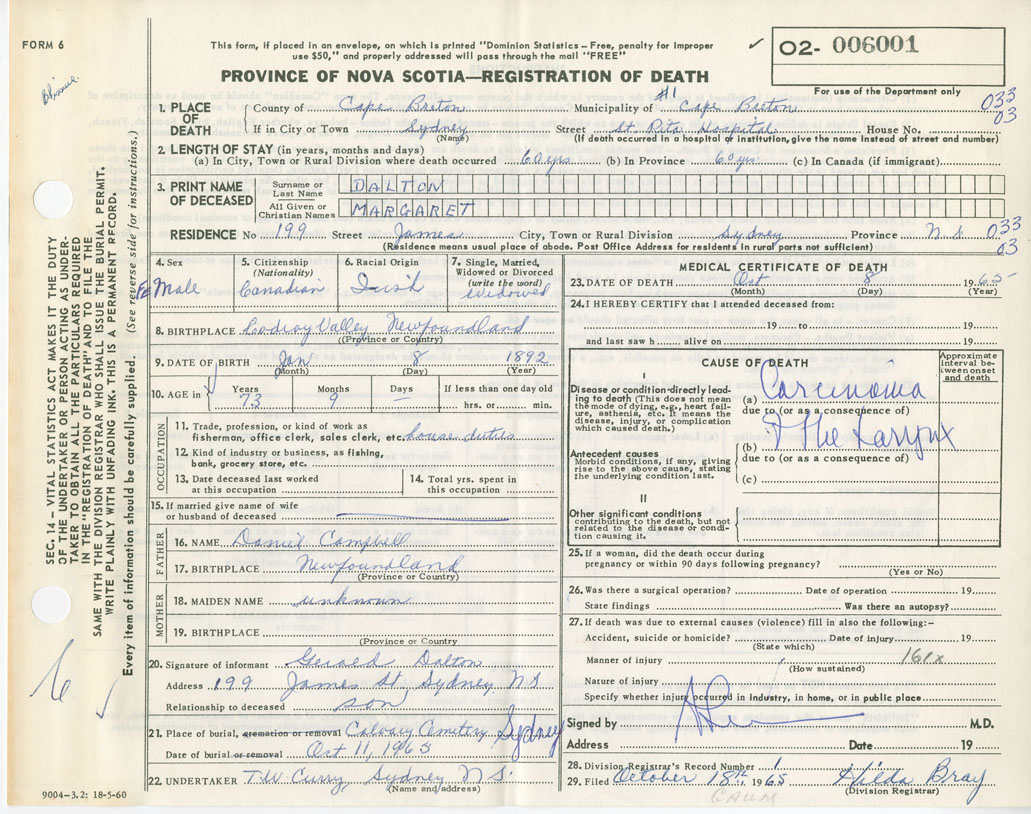 FORM 6
Blimie
This form, if placed in an envelope, on which is printed "Dominion Statistics – Free, penalty for improper
use $50," and properly addressed will pass through the mail "FREE"
✓ O2- 006001
PROVINCE OF NOVA SCOTIA—REGISTRATION OF DEATH
For use of the Department only
1. PLACE OF DEATH County of Cape Breton Municipality of #1 Cape Breton 033
03
If in City or Town Sydney Street St Rita Hospital House No.
(Name) (If death occurred in a hospital or institution, give the name instead of street and number)
2. LENGTH OF STAY (in years, months and days)
(a) In City, Town or Rural Division where death occurred 60 yrs (b) In Province 60 yrs (c) In Canada (if immigrant)
3. PRINT NAME OF DECEASED Surname or Last Name DALTON
All Given or Christian Names MARGARET
RESIDENCE No 199 Street James City, Town or Rural Division Sydney Province N S 033
(Residence means usual place of abode. Post Office Address for residents in rural parts not sufficient) 03
4. Sex
Fe Male
5. Citizenship
(Nationality)
Canadian
6. Racial Origin
Irish
7. Single, Married,
Widowed or Divorced
(write the word)
widowed
8. BIRTHPLACE Codroy Valley Newfoundland
(Province or Country)
9. DATE OF BIRTH Jan 8 1892
(Month) (Day) (Year)
10. AGE in Years Months Days If less than one day old
73 9 — hrs. or min.
OCCUPATION
11. Trade, profession, or kind of work as
fisherman, office clerk, sales clerk, etc. house duties
12. Kind of industry or business, as fishing,
bank, grocery store, etc.
13. Date deceased last worked
at this occupation
14. Total yrs. spent in
this occupation
15. If married give name of wife
or husband of deceased
FATHER
16. NAME Daniel Campbell
17. BIRTHPLACE Newfoundland
(Province or Country)
MOTHER
18. MAIDEN NAME unknown
19. BIRTHPLACE
(Province or Country)
20. Signature of informant Gerald Dalton
Address 199 James St, Sydney NS
Relationship to deceased son
21. Place of burial, cremation or removal Calvary Cemetery Sydney
Date of burial or removal Oct 11, 1965
22. UNDERTAKER T.W. Curry Sydney N S.
(Name and address)
MEDICAL CERTIFICATE OF DEATH
23. DATE OF DEATH Oct 8 1965
(Month) (Day) (Year)
24. I HEREBY CERTIFY that I attended deceased from:
19 to 19
and last saw h alive on 19
CAUSE OF DEATH
Approximate
interval be-
tween onset
and death
I
Disease or condition directly lead-
ing to death (This does not mean
the mode of dying, e.g., heart fail-
ure, asthenia, etc. It means the
disease, injury, or complication
which caused death.)
(a) Carcinoma
due to (or as a consequence of)
(b) of the Larynx
due to (or as a consequence of)
(c)
Antecedent causes
Morbid conditions, if any, giving
rise to the above cause, stating
the underlying condition last.
II
Other significant conditions
contributing to the death, but not
related to the disease or condi-
tion causing it.
25. If a woman, did the death occur during
pregnancy or within 90 days following pregnancy?
(Yes or No)
26. Was there a surgical operation? Date of operation 19
State findings Was there an autopsy?
27. If death was due to external causes (violence) fill in also the following:-
Accident, suicide or homicide? Date of injury 19
(State which)
Manner of injury 161x
(How sustained)
Nature of injury
Specify whether injury occurred in industry, in home, or in public place
Signed by M.D.
Address Date 19
28. Division Registrar's Record Number 1
29. Filed October 18th 1965 Hilda Bray
(Division Registrar)
SEC. 14 – VITAL STATISTICS ACT MAKES IT THE DUTY
OF THE UNDERTAKER OR PERSON ACTING AS UNDER-
TAKER TO OBTAIN ALL THE PARTICULARS REQUIRED
IN THE "REGISTRATION OF DEATH" AND TO FILE THE
SAME WITH THE DIVISION REGISTRAR WHO SHALL ISSUE THE BURIAL PERMIT.
WRITE PLAINLY WITH UNFADING INK. THIS IS A PERMANENT RECORD.
Every item of information should be carefully supplied. (See reverse side for instructions.)
9004-3.2: 18-5-60